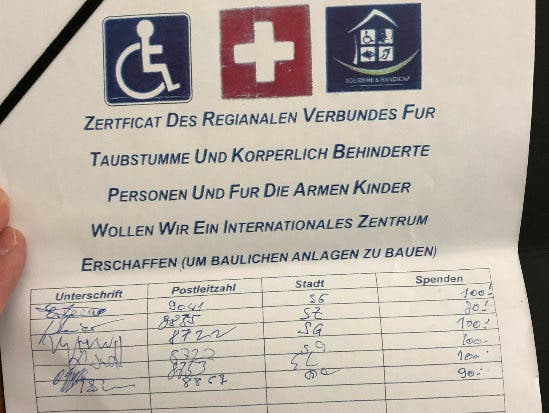 TOURISME & HANDICAP
ZERTFICAT DES REGIANALEN VERBUNDES FUR
TAUBSTUMME UND KORPERLICH BEHINDERTE
PERSONEN UND FUR DIE ARMEN KINDER
WOLLEN WIR EIN INTERNATIONALES ZENTRUM
ERSCHAFFEN (UM BAULICHEN ANLAGEN ZU BAUEN)
Unterschrift Postleitzahl Stadt Spenden
9041 SG 100.-
SZ
8722 SG 100.-
8722 SG 100.-
8753 GL 100.-
90.-